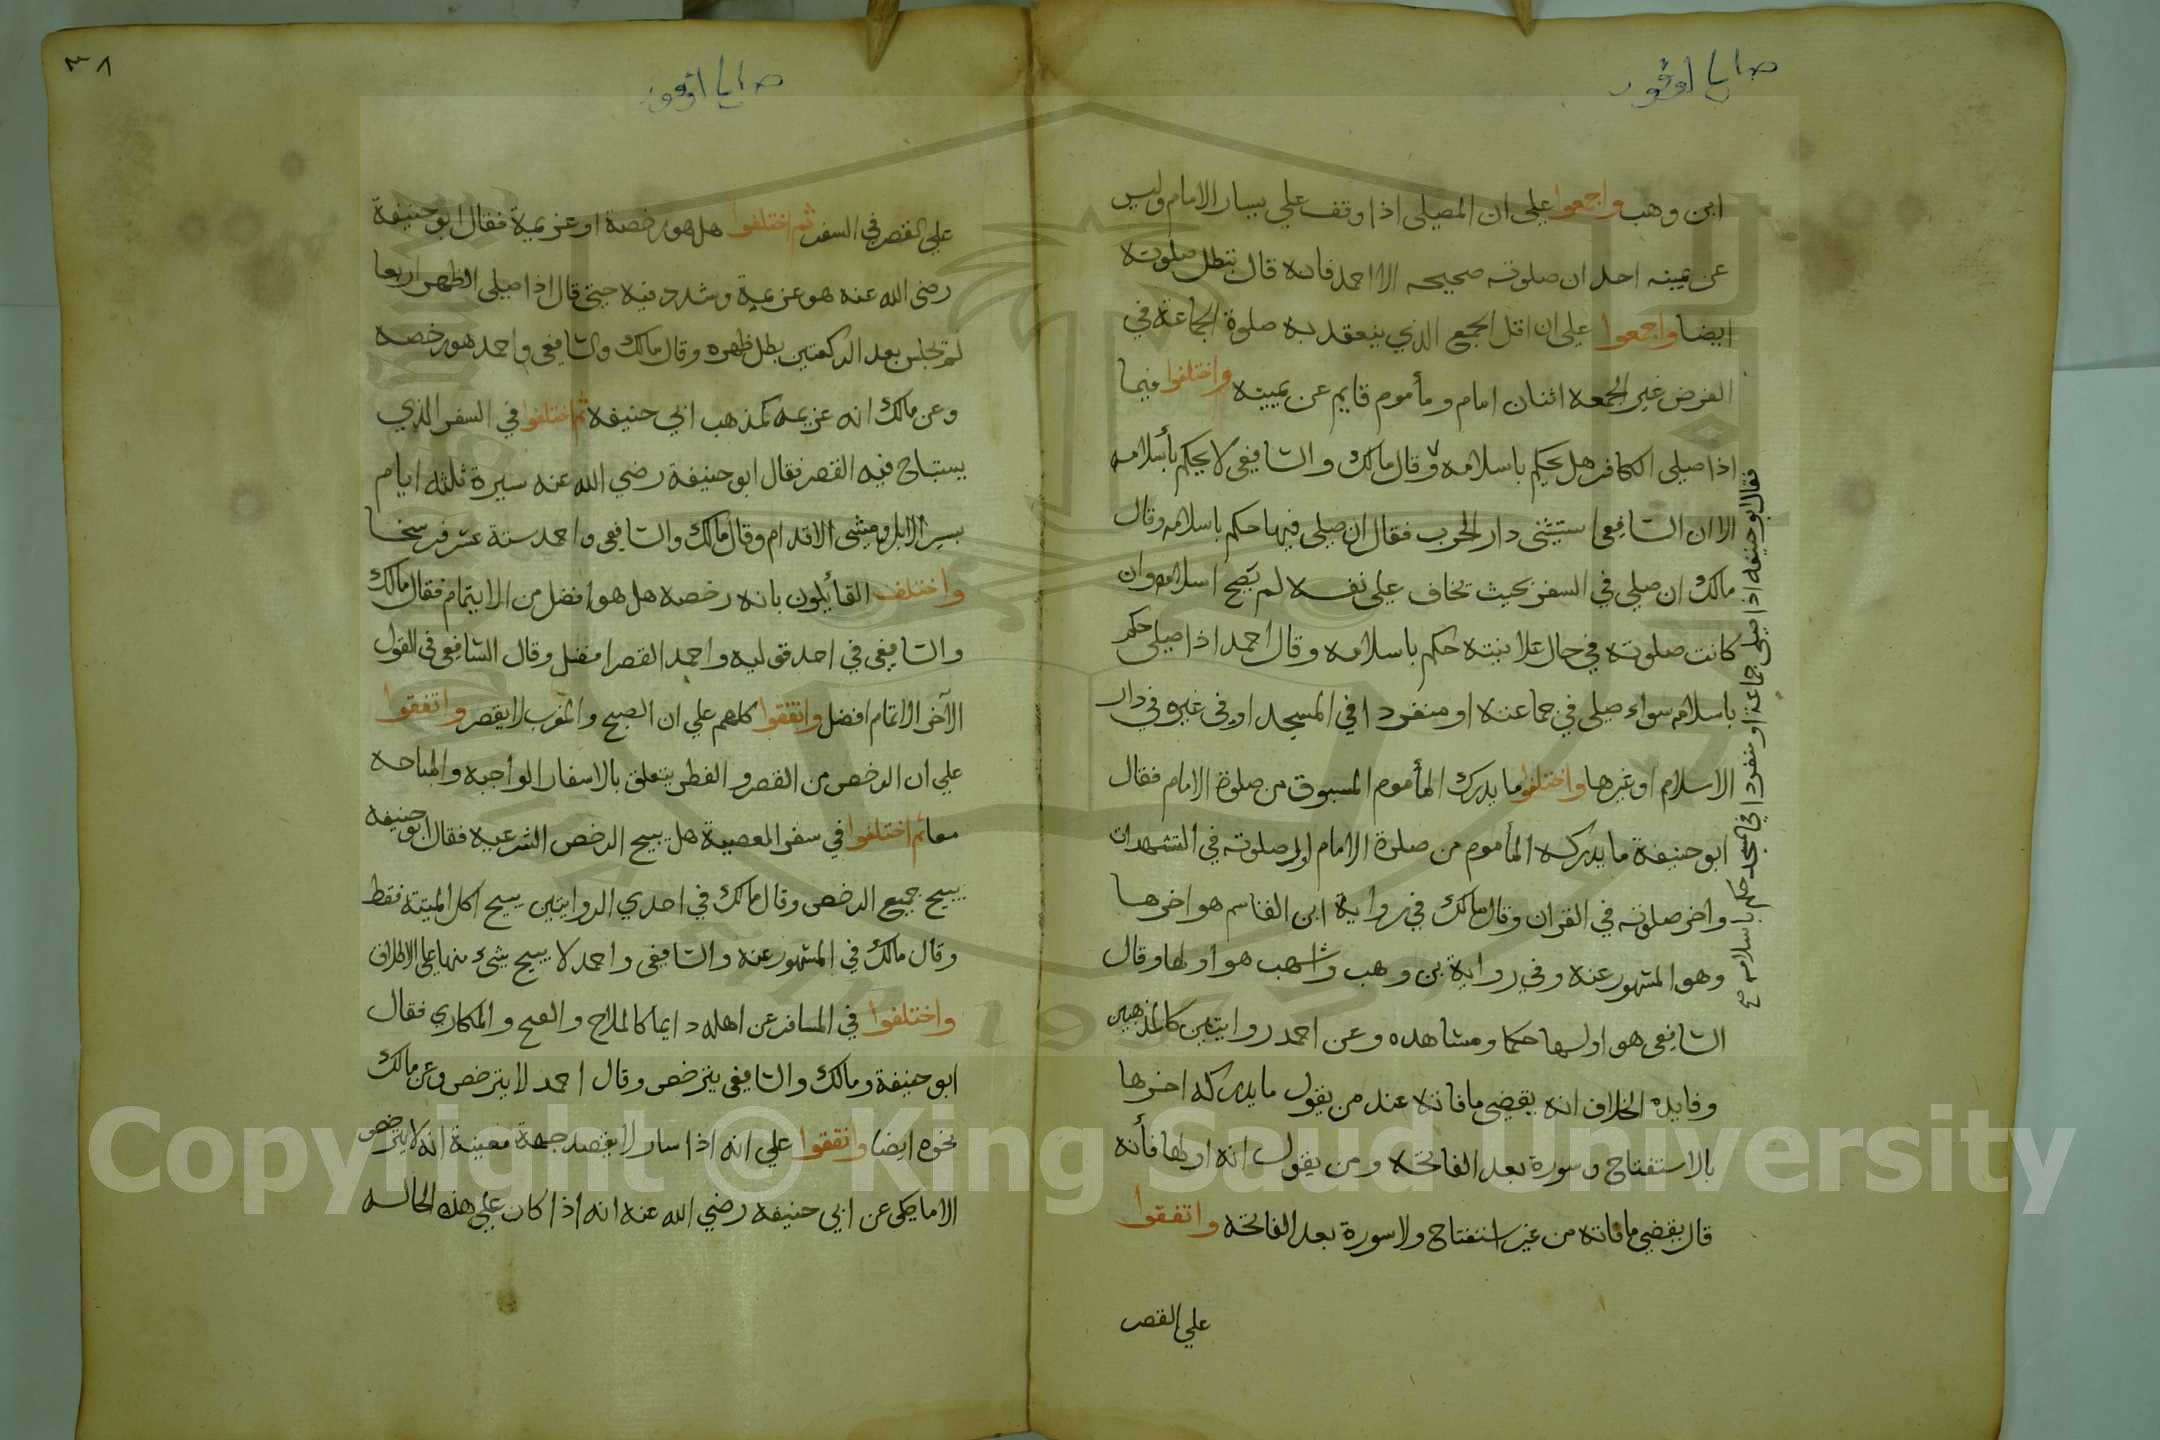 ابن وهب واجمعوا على ان المصلى اذا وقف على يسار الامام وليس
عن يمينه احد ان صلوته صحيحه الا احمد فانه قال تبطل صلوته
ايضا واجمعوا على ان اقل الجمع الذي ينعقد به صلوة الجماعة في
الفرض غير الجمعه اثنان امام ومأموم قايم عن يمينه واختلفوا فيما
اذا صلى الكافر هل يحكم باسلامه وقال مالك والشافعى لا يحكم بأسلامه
الا ان الشافعى استثنى دار الحرب فقال ان صلى فيها حكم باسلامه وقال
مالك ان صلى في السفر بحيث يخاف على نفسه لم يصح اسلامه وان
كانت صلوته في حال علانيته حكم باسلامه وقال احمد اذا صلى حكم
باسلامه سواء صلى في جماعته او منفردا في المسجد او في غيره في دار
الاسلام او غيرها واختلفوا ما يدرك المأموم المسبوق من صلوة الامام فقال
ابو حنيفة ما يدركه المأموم من صلوة الامام اول صلوته في التشهدات
واخر صلوته في القران وقال مالك في رواية ابن القاسم هو اخرها
وهو المشهور عنه وفي رواية بن وهب واشهب هو اولها وقال
الشافعى هو اولها حكما ومشاهده وعن احمد روايتين كالمذهبين
وفايده الخلاف انه يقضى ما فاته عند من يقول ما يدركه اخرها
بالاستفتاح وسورة بعد الفاتحه ومن يقول انه اولها فأنه
قال يقضى ما فاته من غير استفتاح ولا سورة بعد الفاتحه واتفقوا
على القصر
فقال ابو حنيفه اذا صلى جماعة او منفردا في مسجد حكم باسلامه
٣٨
على القصر في السفر ثم اختلفوا هل هو رخصة او عزيمة فقال ابو حنيفة
رضى الله عنه هو عزيمة وشدد فيه حتى قال اذا صلى الظهر اربعا
لم تجلس بعد الركعتين بطل ظهره وقال مالك والشافعى واحمد هو رخصه
وعن مالك انه عزيمه كمذهب ابي حنيفه ثم اختلفوا في السفر الذي
يستباح فيه القصر فقال ابو حنيفة رضي الله عنه سيرة ثلثه ايام
بسير الابل ومشى الاقدام وقال مالك والشافعى واحمد ستة عشر فرسخا
واختلف القائلون بانه رخصه هل هو افضل من الايتمام فقال مالك
والشافعى في احد قوليه واحمد القصر افضل وقال الشافعى فى القول
الآخر الاتمام افضل واتفقوا كلهم علي ان الصبح والمغرب لا يقصر واتفقوا
على ان الرخص من القصر و الفطر يتعلق بالاسفار الواجبه والمباحه
معا ثم اختلفوا في سفر المعصية هل يبيح الرخص الشرعيه فقال ابو حنيفه
يبيح جميع الرخص وقال مالك في احدي الروايتين يبيح اكل الميتة فقط
وقال مالك في المشهور عنه والشافعى واحمد لا يبيح شىء منها على الاطلاق
واختلفوا في المسافر عن اهله دايما كالملاح والفيج والمكاري فقال
ابو حنيفة ومالك والشافعى يترخص وقال احمد لا يترخص وعن مالك
نحوه ايضا واتفقوا علي انه اذا سار لا بقصد جهة معينة انه لا يترخص
الا ما يحكى عن ابي حنيفه رضي الله عنه انه اذا كان علي هذه الحاله
Copyright © King Saud University